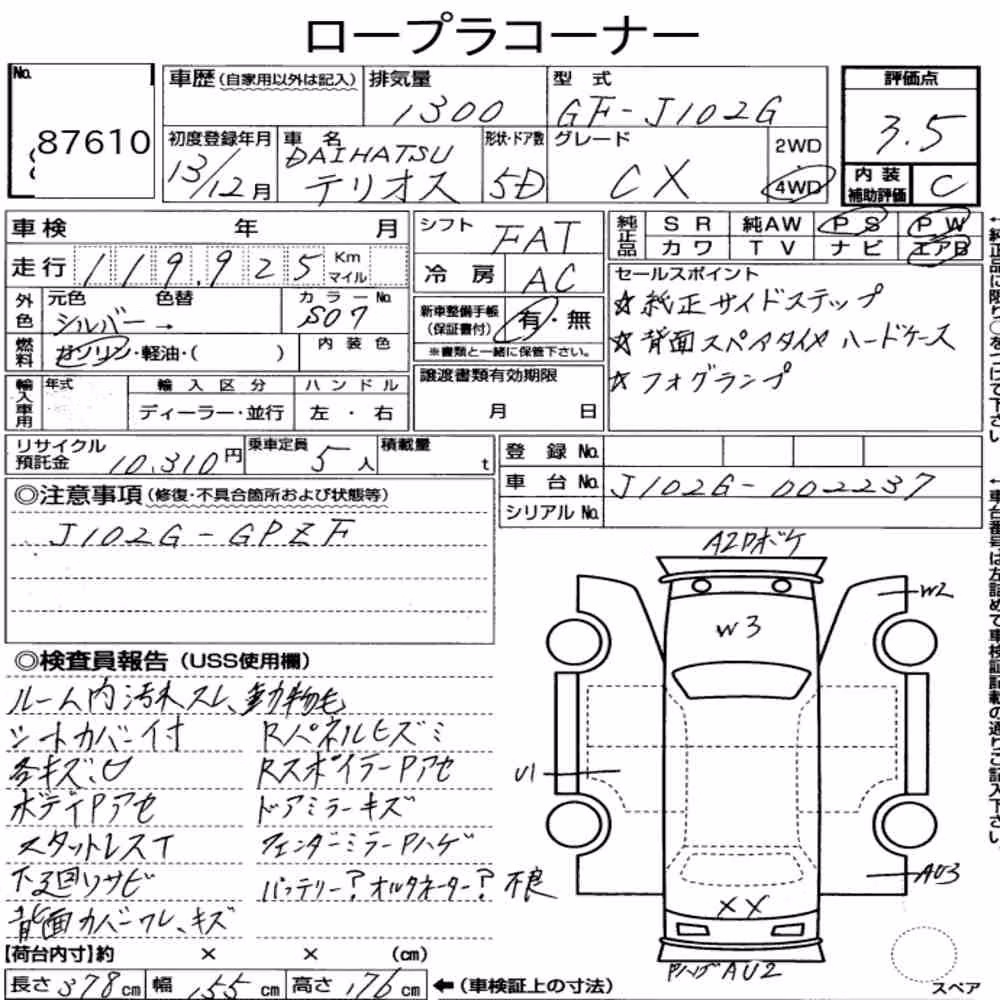 ロープラコーナー
No. 87610
車歴(自家用以外は記入) 排気量 1300 型式 GF-J102G
初度登録年月 13/12月 車名 DAIHATSU テリオス 形状・ドア数 5D グレード CX 2WD ・ 4WD
評価点 3.5
内装補助評価 C
車検 年 月
走行 119,925 Km マイル
外色 元色 シルバー→ 色替 カラーNo. S07
燃料 ガソリン・軽油・( ) 内装色
輸入車用 年式 輸入区分 ディーラー・並行 ハンドル 左・右
シフト FAT
冷房 AC
新車整備手帳(保証書付) 有・無
※書類と一緒に保管下さい。
譲渡書類有効期限
月 日
純正品 SR 純AW PS PW
カワ TV ナビ エアB
セールスポイント
☆純正サイドステップ
☆背面スペアタイヤハードケース
☆フォグランプ
←純正品に限り○をつけて下さい
リサイクル預託金 10,310円 乗車定員 5人 積載量 t
登録No.
車台No. J102G-002237
シリアルNo.
←車台番号は左詰めで車検証記載の通りご記入下さい。
◎注意事項(修復・不具合箇所および状態等)
J102G-GPZF
◎検査員報告(USS使用欄)
ルーム内汚れスレ、動物毛
シートカバー付 Rパネルヒズミ
各キズ、凹 RスポイラーPアセ
ボディPアセ ドアミラーキズ
スタットレスT フェンダーミラーPハゲ
下廻りサビ バッテリー?オルタネーター?不良
背面カバーワレ、キズ
A2Pボケ
W2
W3
U1
AU3
XX
PハゲAU2
スペア
【荷台内寸】約 × × (cm)
長さ378cm 幅155cm 高さ176cm ←(車検証上の寸法)